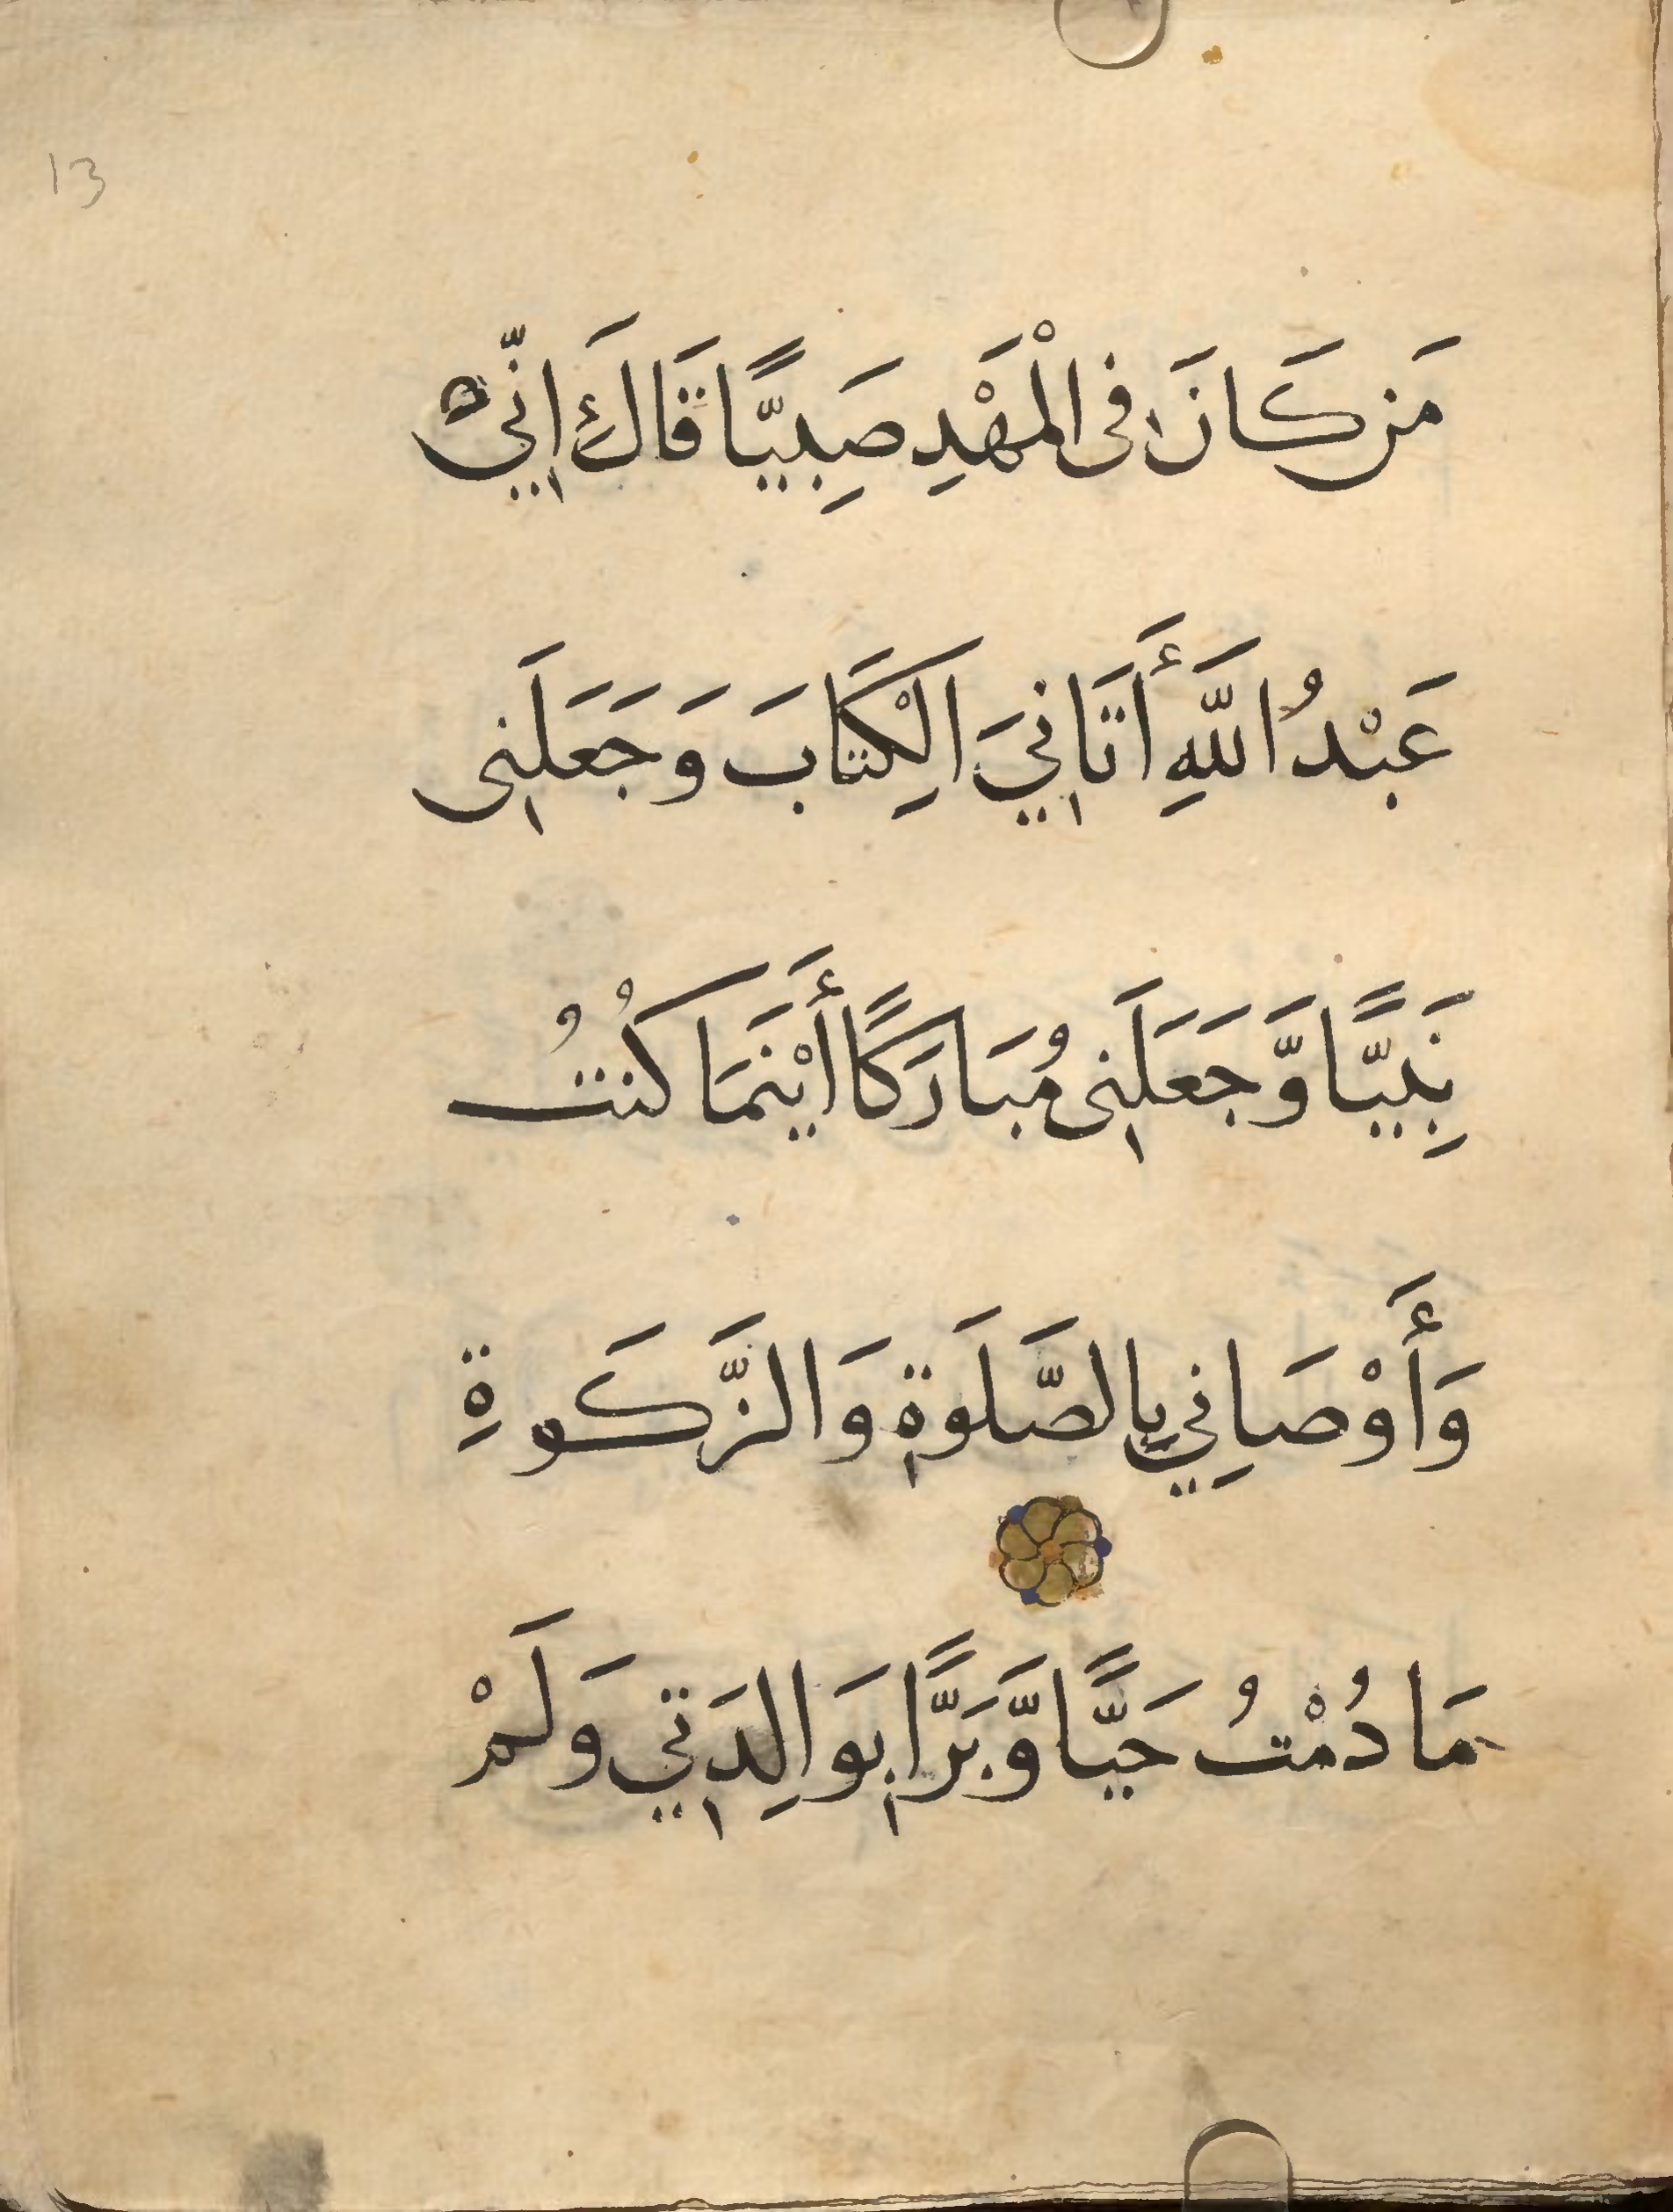 13
مَن كَانَ فِى الْمَهْدِ صَبِيًّا قَالَ اِنّىِ
عَبْدُ اللَّهِ أَتَانِيَ الْكِتَابَ وَجَعَلَنِى
نَبِيًّا وَّجَعَلَنِى مُبَارَكًا أَيْنَمَا كُنتُ
وَأَوْصَانِي بِالصَّلَوةِ وَالزَّكَوةِ
مَا دُمْتُ حَيًّا وَّبَرًّا بِوَالِدَتِي وَلَمْ